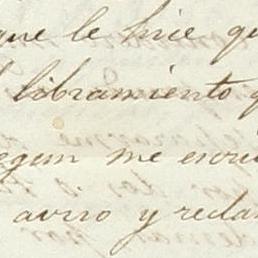 que le hice qu
libramiento q
egun me escri
aviso y recla